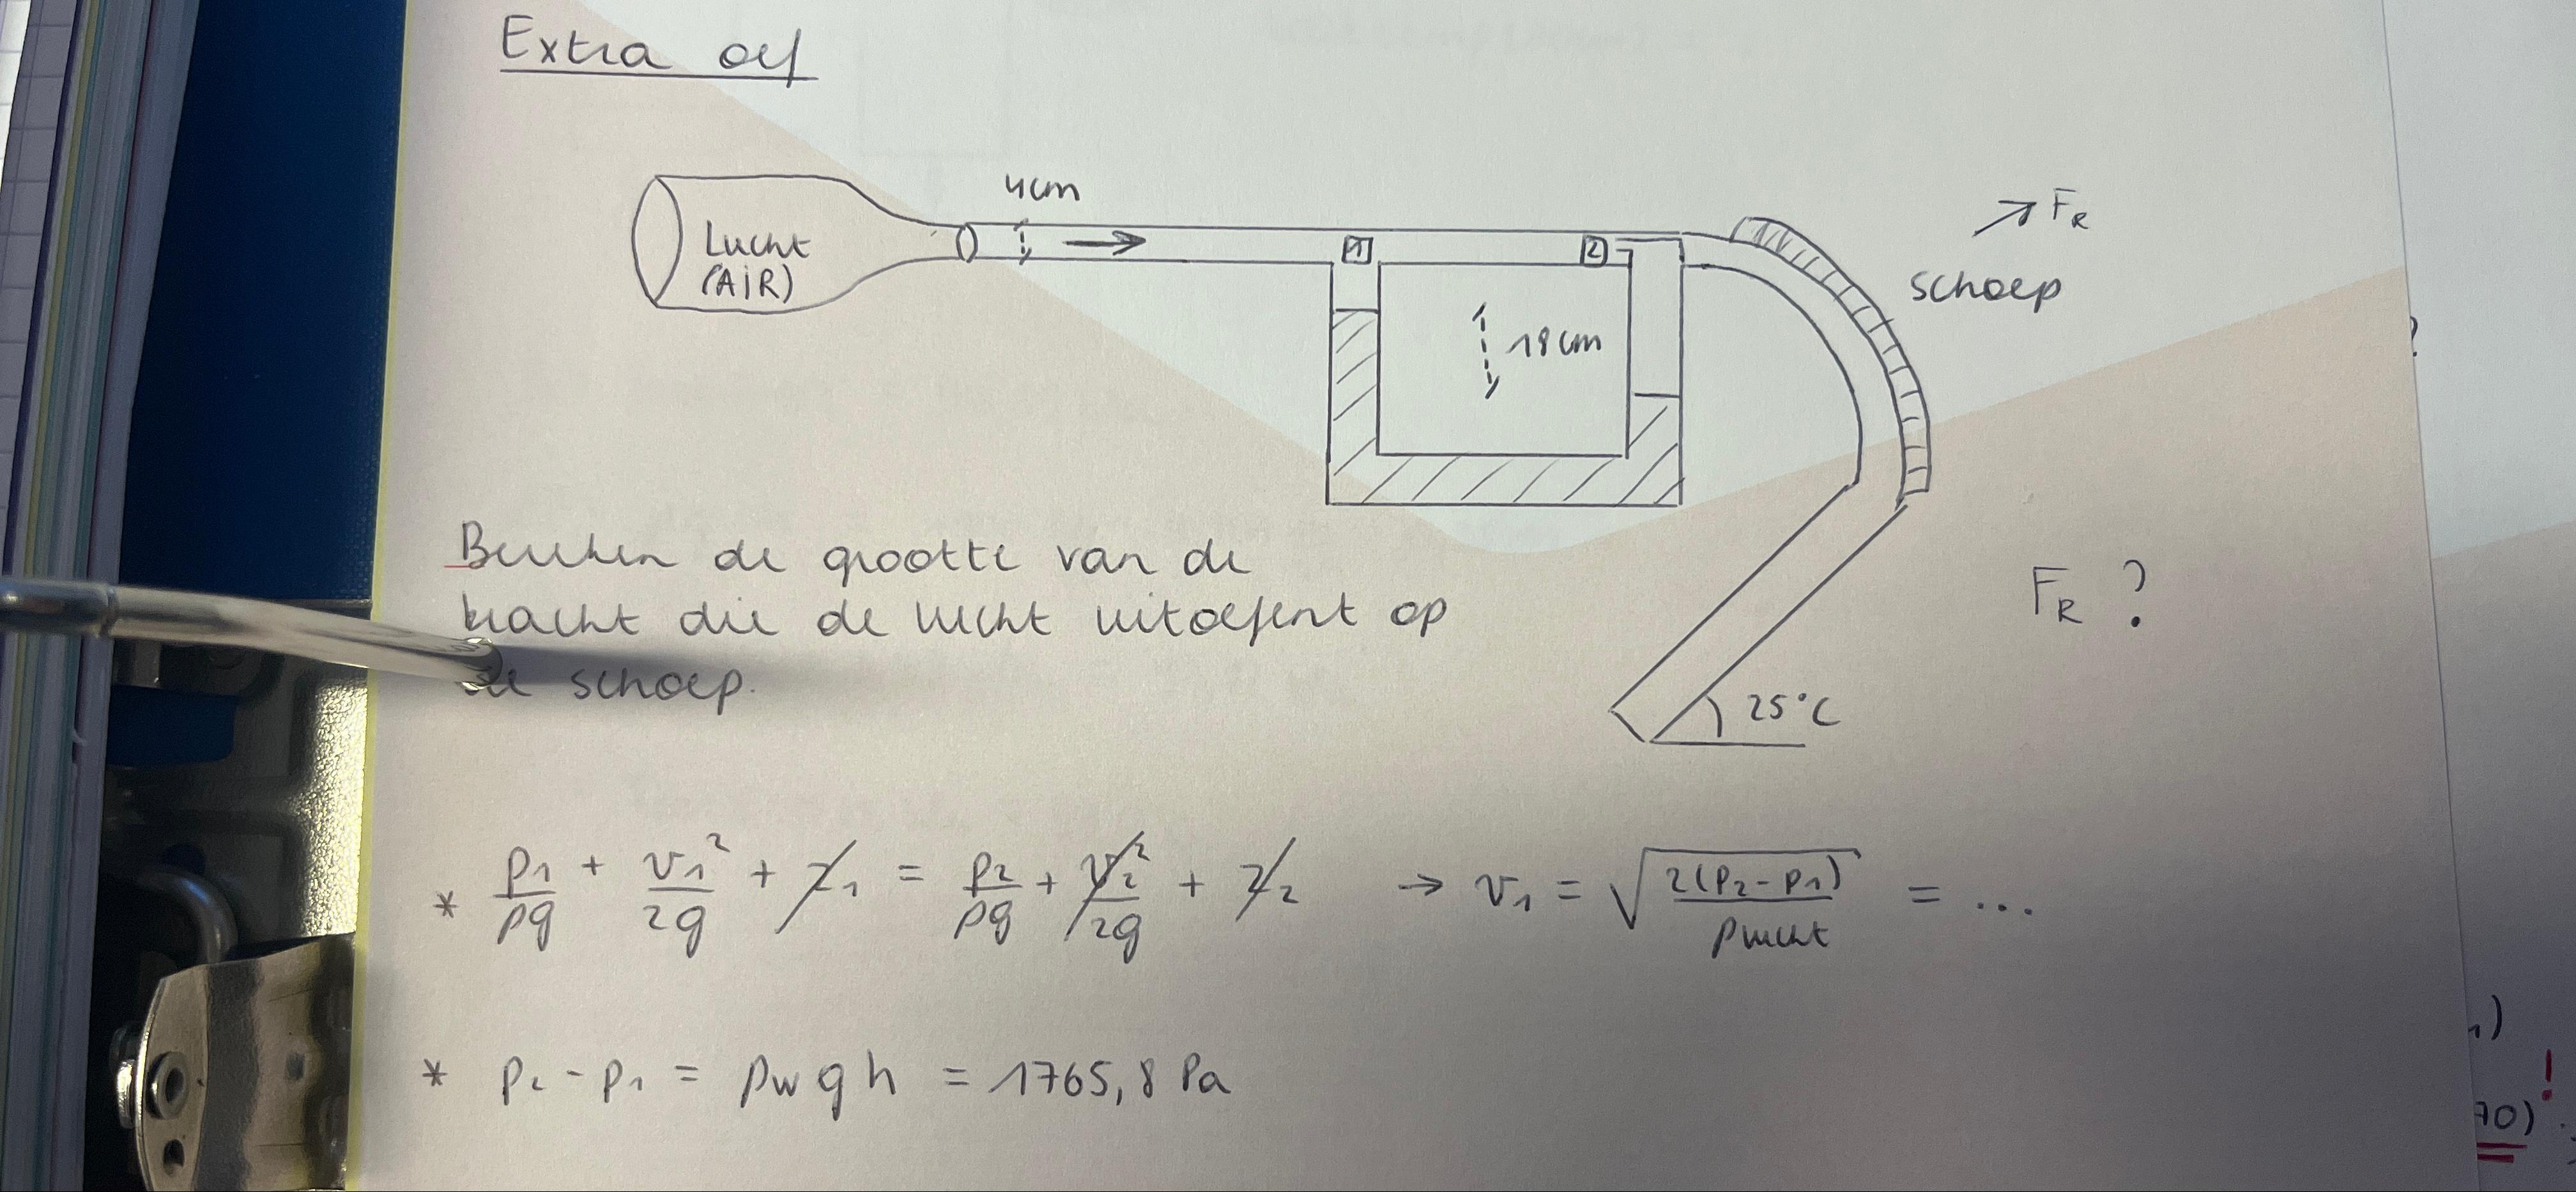 Extra oef
4cm
Lucht
(AiR)
1
2
18cm
FR
schoep
Bereken de grootte van de
kracht die de lucht uitoefent op
de schoep.
FR ?
25°C
* p1/ρg + v1²/2g + z1 = p2/ρg + v2²/2g + z2 → v1 = √(2(p2-p1)/ρlucht) = ...
* p2 - p1 = ρw g h = 1765,8 Pa
!
70)